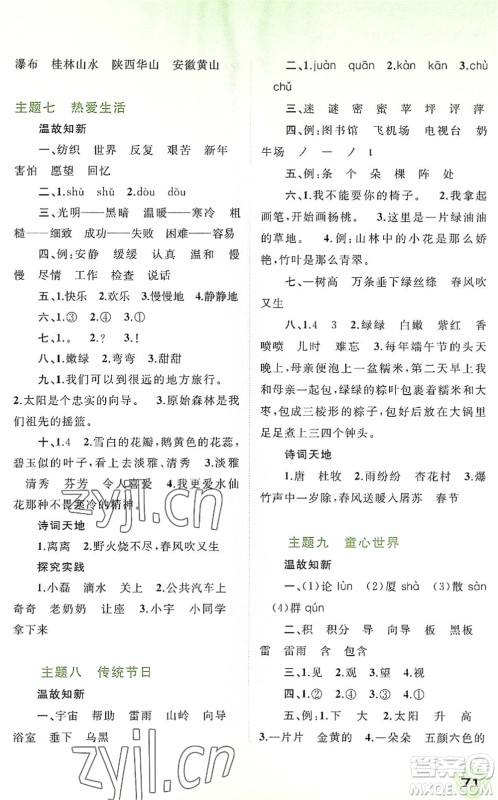 瀑布 桂林山水 陕西华山 安徽黄山
主题七 热爱生活
温故知新
一、纺织 世界 反复 艰苦 新年
害怕 愿望 回忆
二、1.shù shǔ 2.dòu dǒu
三、光明——黑暗 温暖——寒冷 粗心
——细致 成功——失败 困难——容易
四、例:安静 缓缓 认真 温和 慢
慢 尽情 工作 检查 说话
五、1.快乐 2.欢乐 3.慢慢地 4.静静地
六、③④①
七、1.。 2.? 3.!
八、1.嫩绿 2.弯弯 3.甜甜
九、1.我们要到很远的地方旅行。
2.太阳是个忠实的向导。 3.原始森林是我们
祖先的摇篮。
十、1.4 2.雪白的花瓣,鹅黄色的花蕊,
碧玉似的叶子,看上去淡雅、清秀 3.淡雅
清秀 芬芳 令人喜爱 4.我更爱水仙
花那种不畏寒冷的精神!
诗词天地
1.离离 2.野火烧不尽,春风吹又生
探究实践
1.小磊 滴水 关上 2.公共汽车上
奇奇 老奶奶 让座 3.小宇 字典
拿下来
主题八 传统节日
温故知新
一、宇宙 帮助 雷雨 山岭 向导
浴室 垂下 乌黑
二、1.juàn quān 2.cháo zhāo 3.chù
chǔ
三、迷 谜 密 蜜 苹 坪 评 萍
四、例:图书馆 飞机场 电视台 奶
牛场 ノ 一 ノ 丨
五、例:条 个 朵 棵 阵 处
六、1.我不能要你的椅子。 2.我拿起
画笔,开始画杨桃。 3.这里是一片绿油油
的草地。 4.例:山林中的小花是那么娇
艳,竹叶是那么青翠。
七、一树高 万条垂下绿丝绦 春风吹
又生
八、1.4 3 2.绿绿 白嫩 紫红 香
喷喷 儿时 难忘 3.每年端午节的头天
晚上,母亲先泡上一盆糯米,第二天早上我
和母亲用翠绿的粽叶包裹着雪白的糯米,
包成三棱形的粽子,包好以后放在大锅里
足足煮上三四个钟头。
诗词天地
1.唐 杜牧 2.雨纷纷 杏花村 3.爆
竹声中一岁除,春风送暖入屠苏 春节
主题九 童心世界
温故知新
一、(1)论 lùn (2)厦 shà (3)散 sàn
(4)群 qún
二、积 积分 导 导向 板 黑板
雷 雷雨 含 包含
三、1.见 2.观 3.看 4.望 5.视
四、①②④③
五、例:1.下 大 2.太阳 升 高
3.一片片 金黄的 4.一朵朵 五颜六色的
71
zyjl.cn
zyjl.cn
答案圈
MXQE.COM